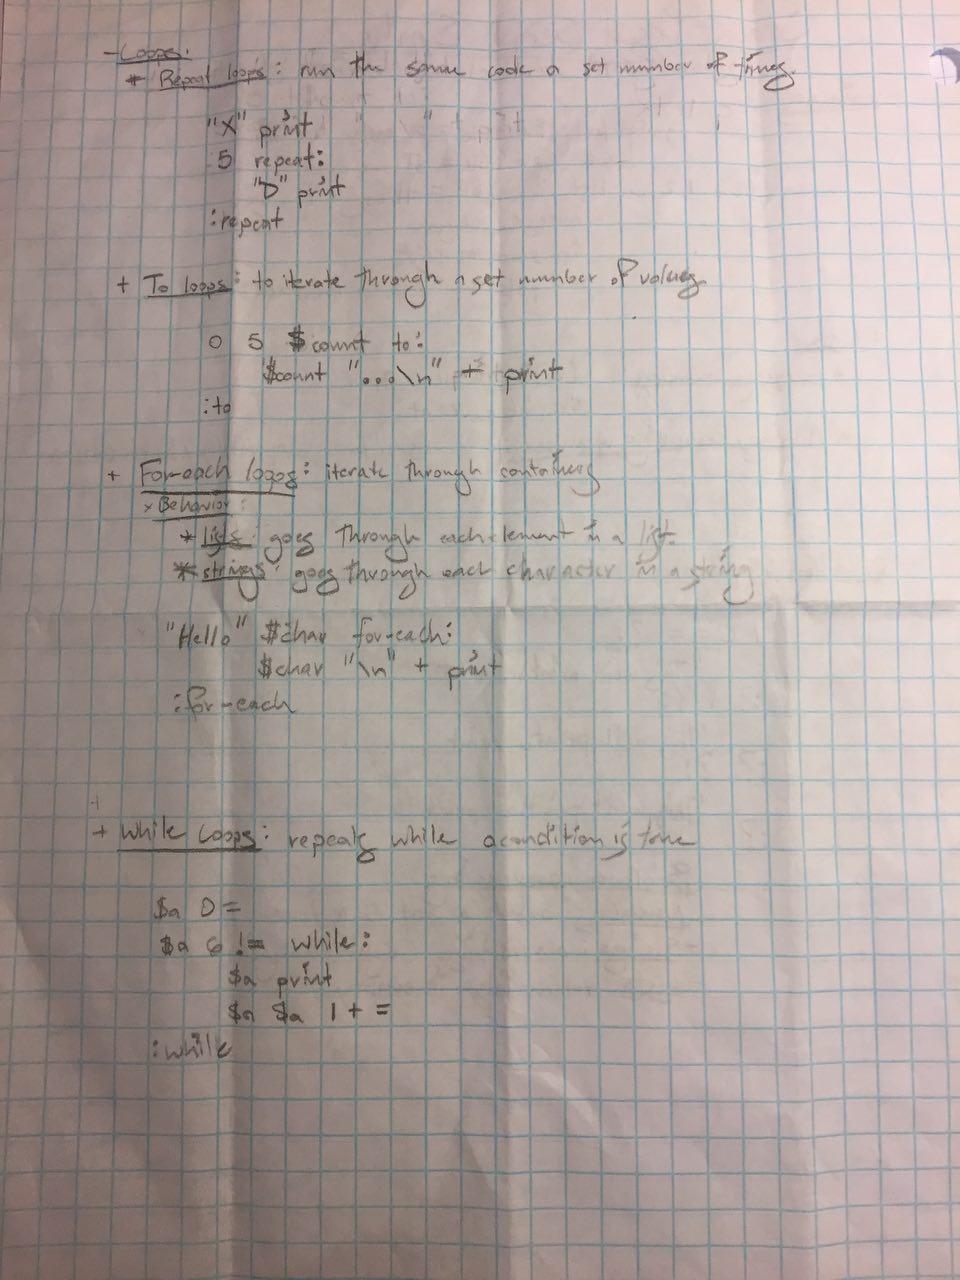 - Loops:
* Repeat loops: run the same code a set number of times.
"X" print
5 repeat:
"D" print
:repeat
+ To loops: to iterate through a set number of values
0 5 $count to:
$count "...\n" + print
:to
+ For-each loops: iterate through containers
x Behavior:
* lists: goes through each element in a list.
* strings: goes through each character in a string
"Hello" $char for-each:
$char "\n" + print
:for-each
+ While Loops: repeats while a condition is true
$a 0 =
$a 6 != while:
$a print
$a $a 1 + =
:while